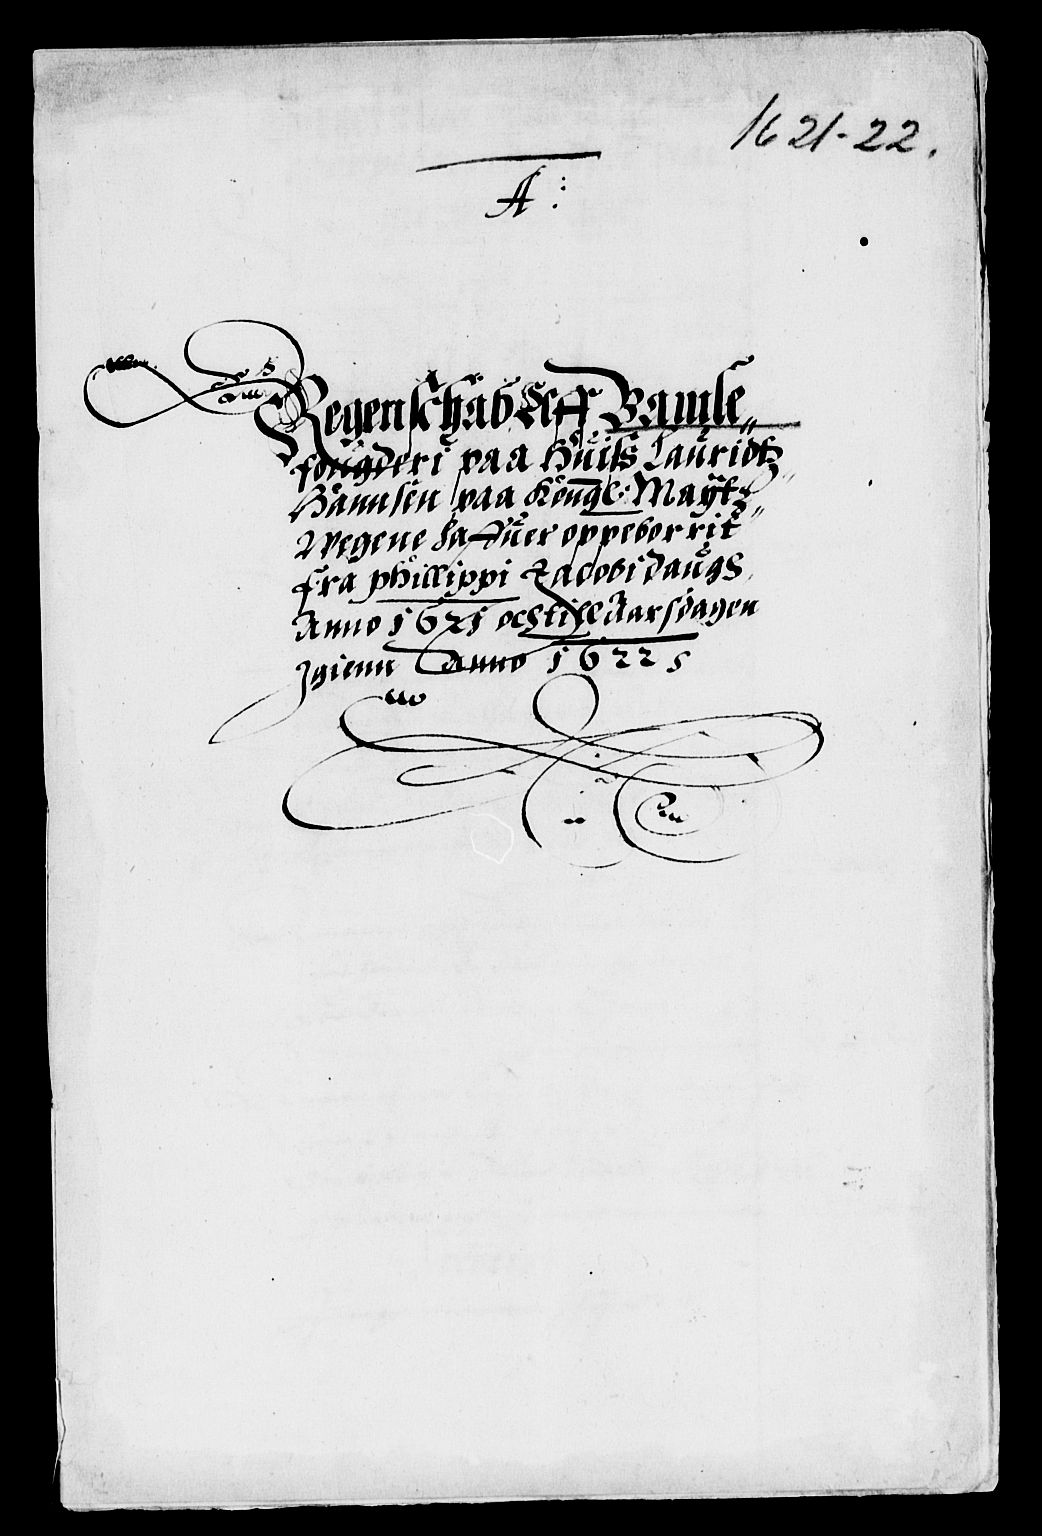 1621-22.
A:
Regenschab Aff Bamle
fougderi paa Huiss Lauridtz
Hannsen paa Kongl: Maytz
Wegene haffuer oppeborrit
fra phillippi Jacobi daugs
Anno 1621 och till Aarsdagen
Igienn Anno 1622